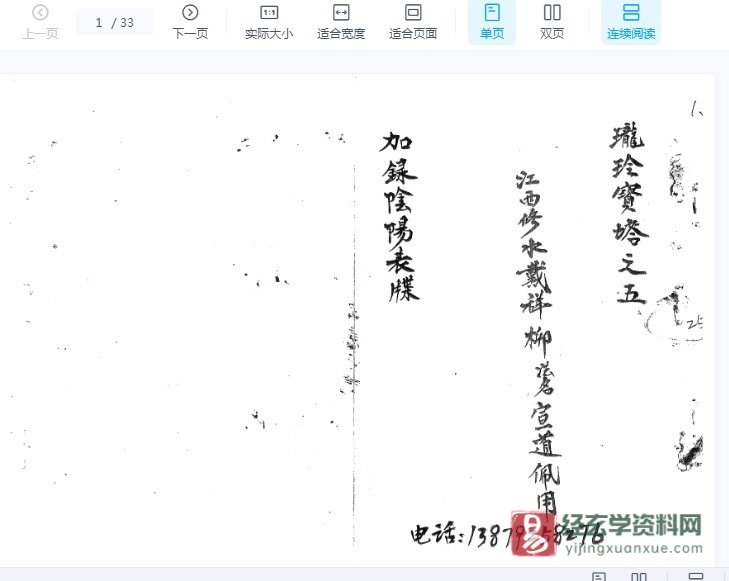 上一页
1 / 33
下一页
实际大小
适合宽度
适合页面
单页
双页
连续阅读
瓏玲寶塔之五
江西修水戴祥柳法名宣道佩用
加錄陰陽表牒
电话:13879
58276
易
经玄学资料网
yijingxuanxue.com